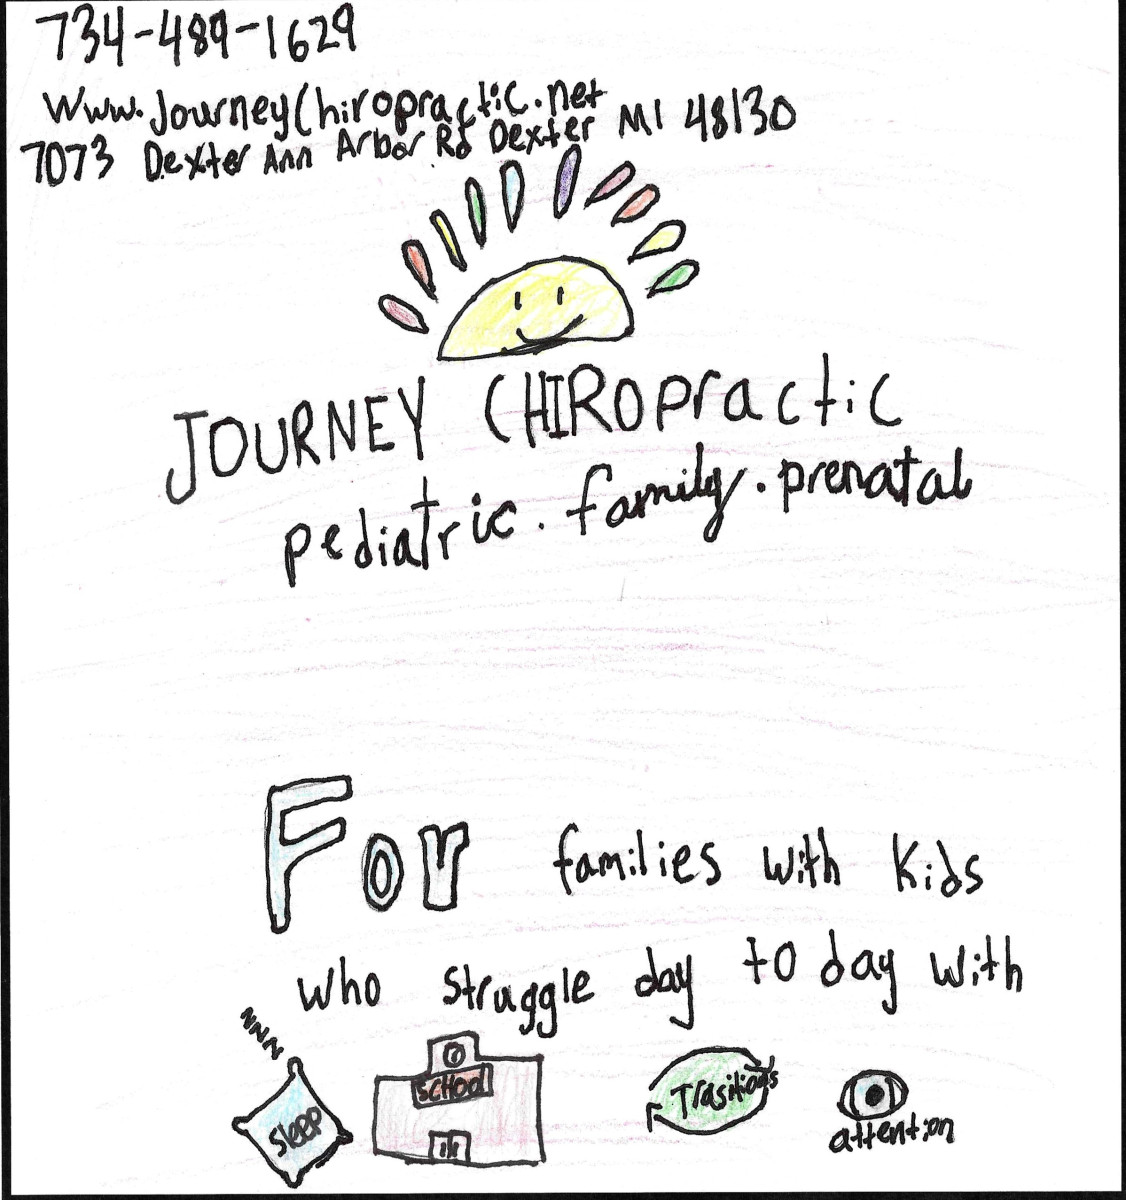 734-489-1629
www.JourneyChiropractic.net
7073 Dexter Ann Arbor Rd Dexter MI 48130
JOURNEY CHIROpractic
pediatric . family . prenatal
For families with kids
who struggle day to day with
zzzz
Sleep
SCHOOL
Trasitions
attention